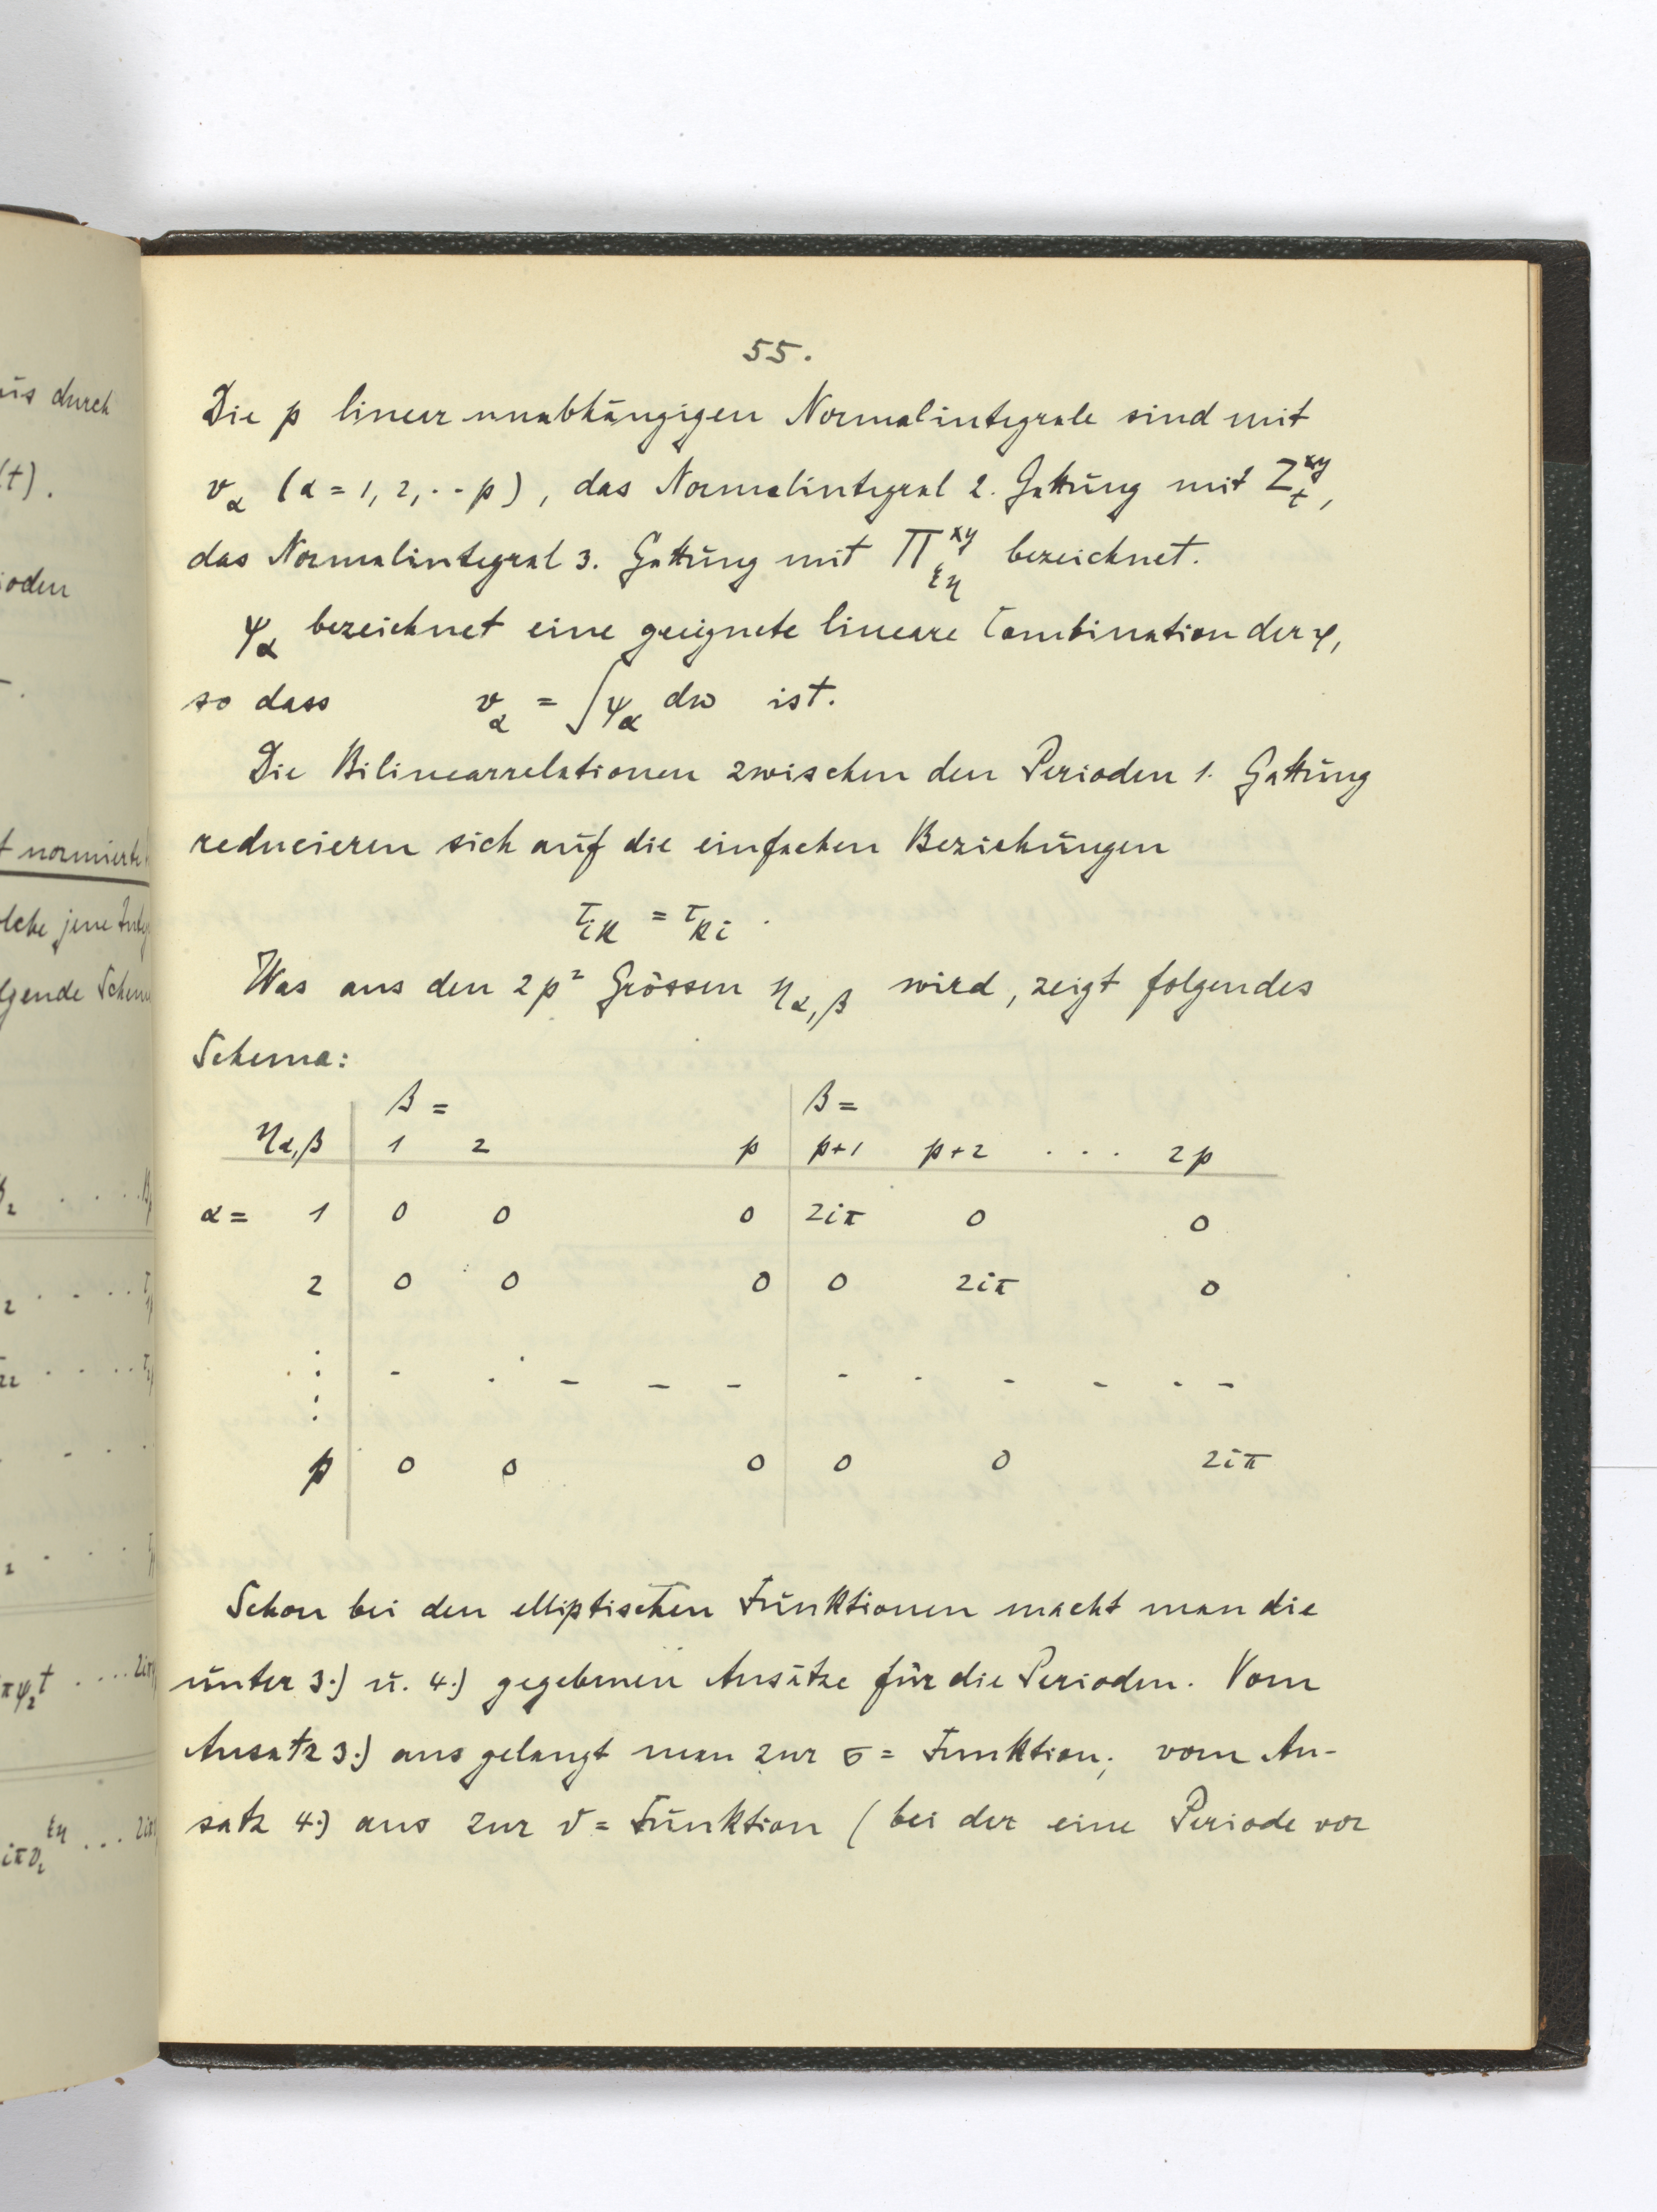 55.
Die p linear unabhängigen Normalintegrale sind mit
v_α (α = 1, 2, ·· p), das Normalintegral 2. Gattung mit Z_t^{xy},
das Normalintegral 3. Gattung mit Π_{ξη}^{xy} bezeichnet.
ψ_α bezeichnet eine geeignete lineare Combination der φ,
so dass v_α = ∫ψ_α dω ist.
Die Bilinearrelationen zwischen den Perioden 1. Gattung
reducieren sich auf die einfachen Beziehungen
τ_{ik} = τ_{ki}.
Was aus den 2p² Grössen η_{α,β} wird, zeigt folgendes
Schema:
β = β =
η_{α,β} 1 2 p p+1 p+2 . . . 2p
α = 1 0 0 0 2iπ 0 0
2 0 0 0 0 2iπ 0
⋮ - . - - - - . - - - -
p 0 0 0 0 0 2iπ
Schon bei den elliptischen Funktionen macht man die
unter 3.) u. 4.) gegebenen Ansätze für die Perioden. Vom
Ansatz 3.) aus gelangt man zur σ = Funktion; vom An-
satz 4.) aus zur ϑ = Funktion (bei der eine Periode vor